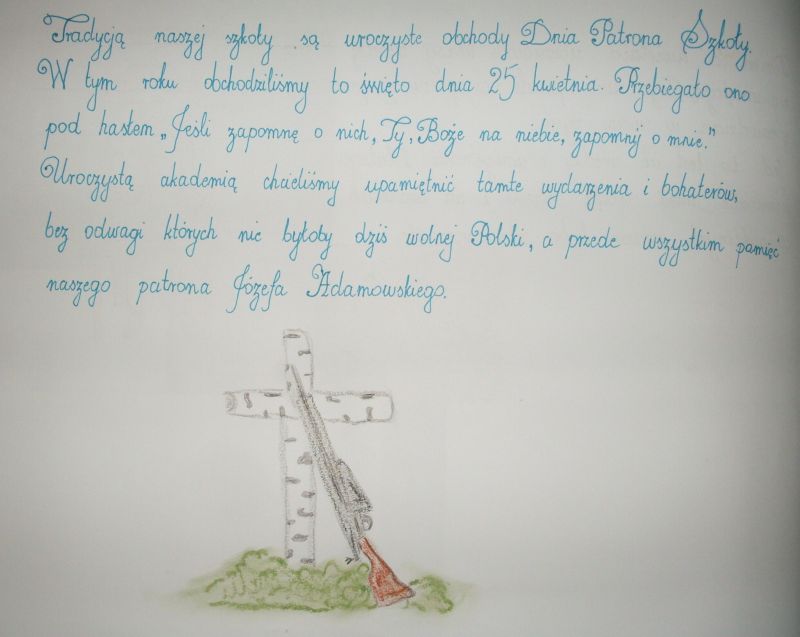 Tradycją naszej szkoły są uroczyste obchody Dnia Patrona Szkoły.
W tym roku obchodziliśmy to święto dnia 25 kwietnia. Przebiegało ono
pod hasłem „Jeśli zapomnę o nich, Ty, Boże na niebie, zapomnij o mnie."
Uroczystą akademią chcieliśmy upamiętnić tamte wydarzenia i bohaterów,
bez odwagi których nie byłoby dziś wolnej Polski, a przede wszystkim pamięć
naszego patrona Józefa Adamowskiego.